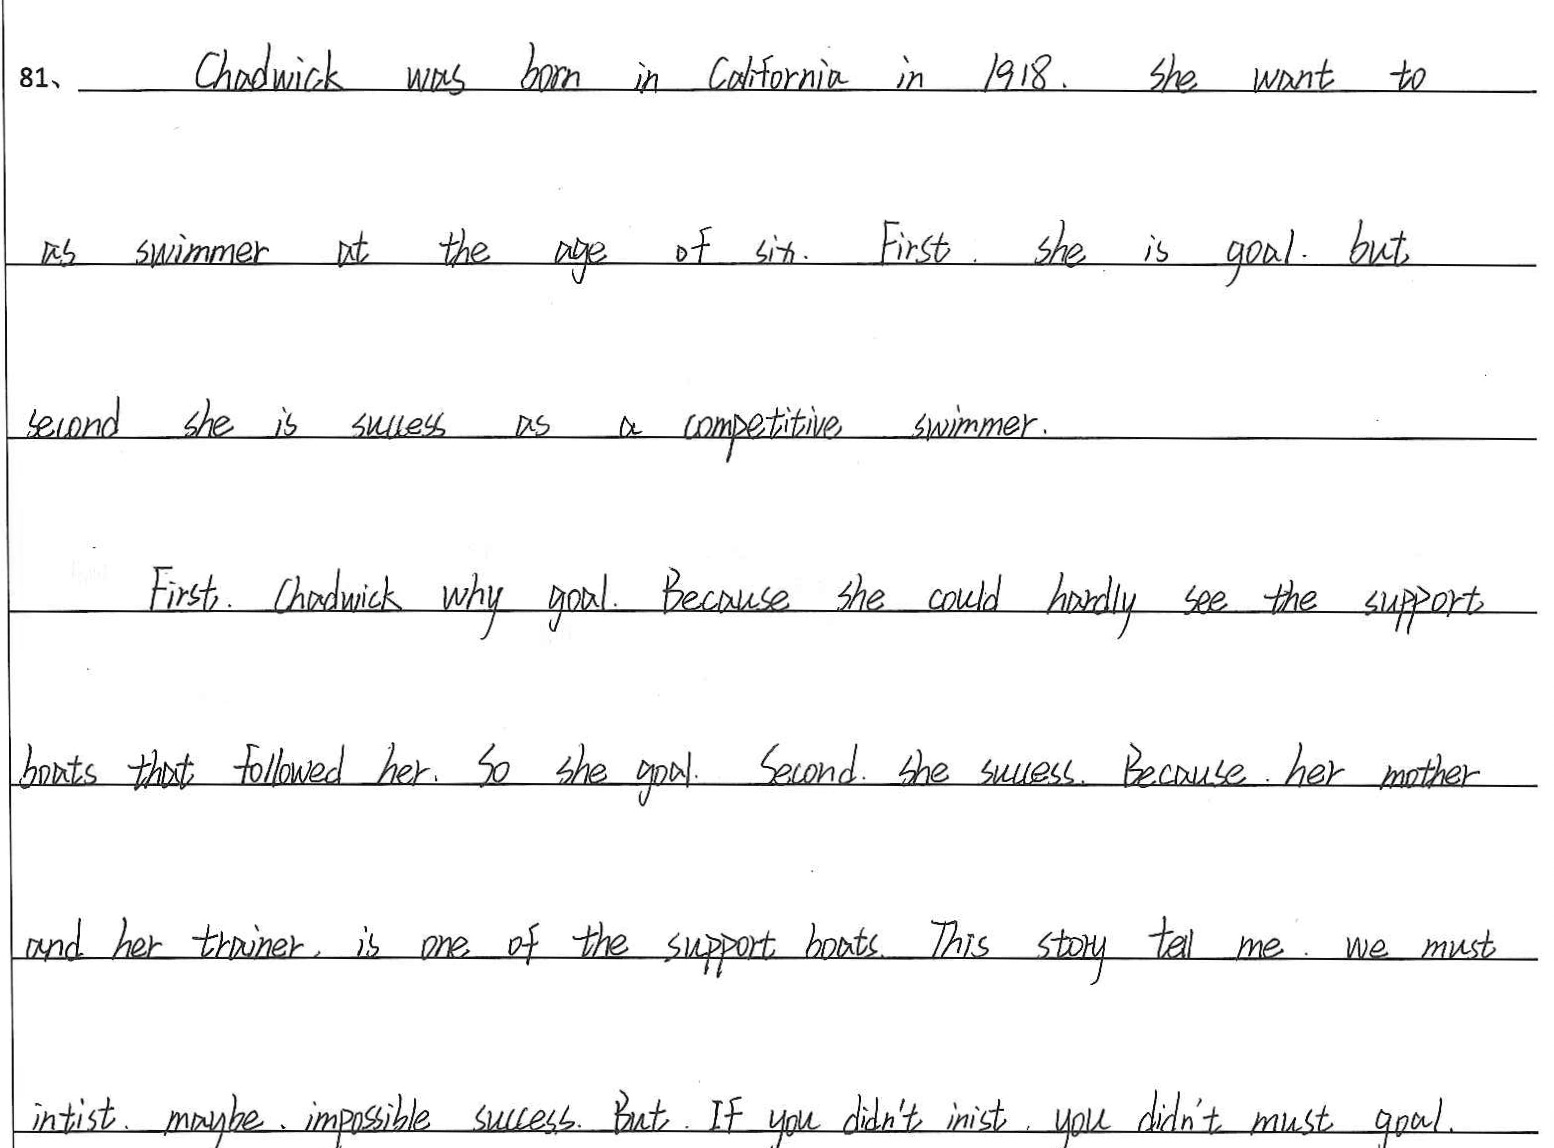 81、 Chadwick was born in California in 1918. she want to
as swimmer at the age of six. First. she is goal. but
second she is success as a competitive swimmer.
First. Chadwick why goal. Because she could hardly see the support
boats that followed her. So she goal. Second. she success. Because. her mother
and her trainer. is one of the support boats. This story tell me. we must
intist. maybe. impossible success. But. If you didn't inist. you didn't must goal.